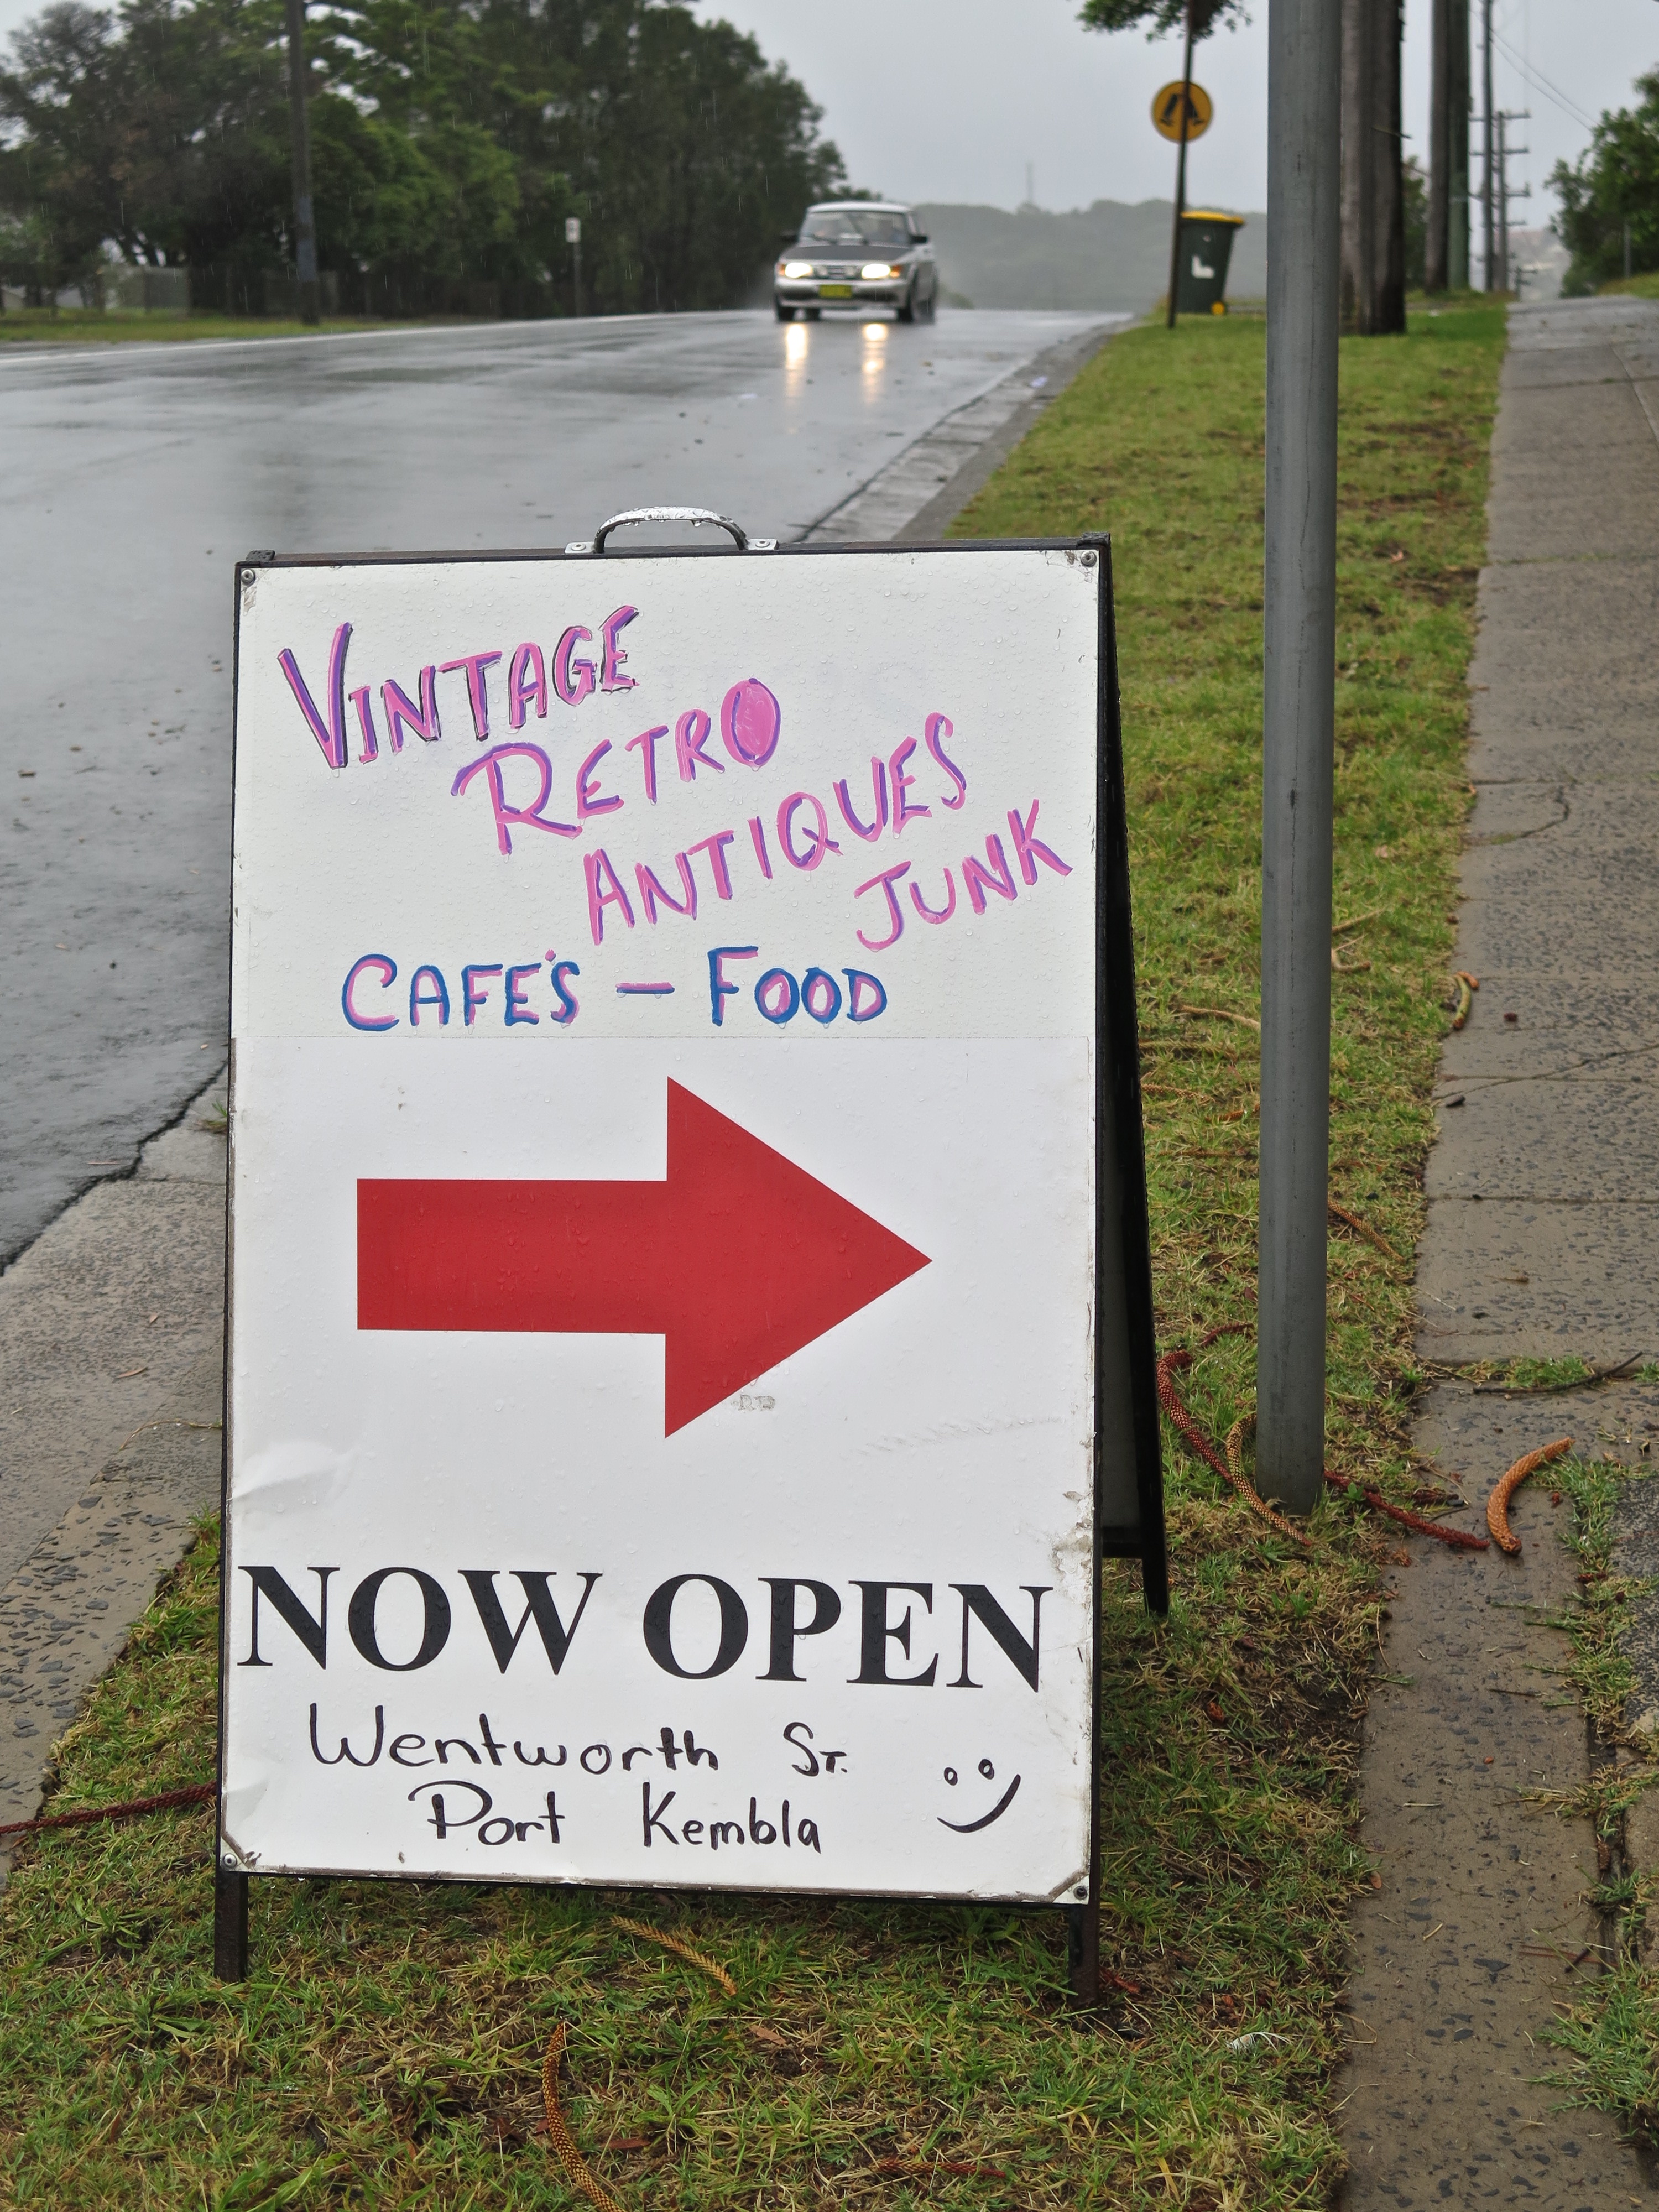 VINTAGE
RETRO
ANTIQUES
JUNK
CAFE'S – FOOD
NOW OPEN
Wentworth St.
Port Kembla